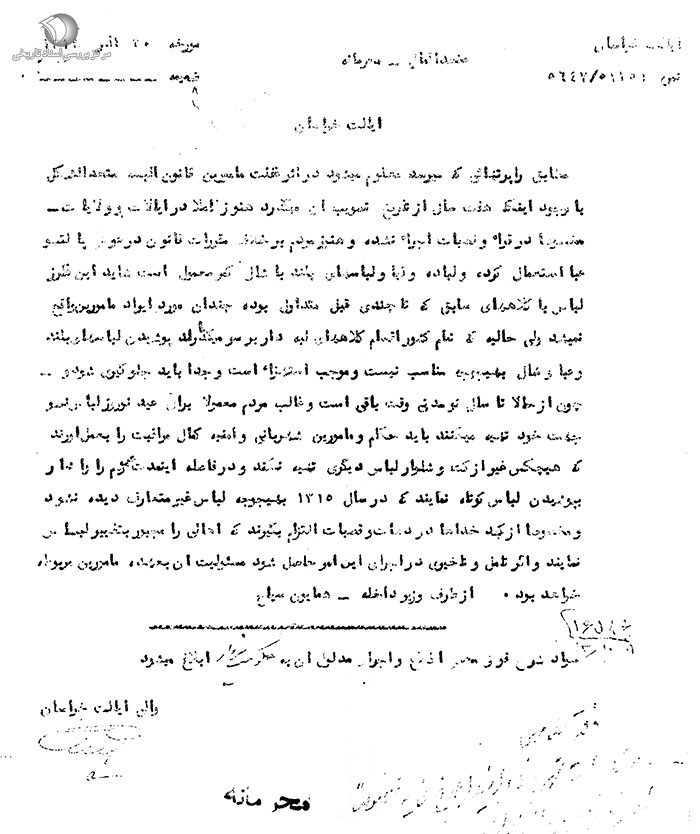 مرکز بررسی اسناد تاریخی
ایالت خراسان
نمره ۵۶۴۷/۵۱۱۵۱
متحدالمال ــ محرمانه
مورخه ۳۰
ضمیمه
ایالت خراسان
مطابق راپرتهائی که میرسد معلوم میشود در اثر غفلت مامورین قانون البسه متحدالشکل
با وجود اینکه هفت سال از تاریخ تصویب آن میگذرد هنوز کاملا در ایالات و ولایات ــ
مخصوصا در قراء و قصبات اجراء نشده و هنوز مردم برخلاف مقررات قانون درعوض پالتو
عبا استعمال کرده و لباده و قبا و لباسهای بلند با شال کمر معمول است شاید این طرز
لباس با کلاههای سابق که تا چندی قبل متداول بوده چندان مورد ایراد مامورین واقع
نمیشد ولی حالیه که تمام کشور اتمام کلاههای لبه دار بر سر میگذارند پوشیدن لباسهای بلند
و عبا و شال بهیچوجه مناسب نیست و موجب استهزاء است و جدا باید جلوگیری شود و ــ
چون از حالا تا سال نو مدتی وقت باقی است و غالب مردم معمولا برای عید نوروز لباس نو
جهت خود تهیه میکنند باید حکام و مامورین شهربانی و امنیه کمال مراقبت را بعمل آورند
که هیچکس غیر از کت و شلوار لباس دیگری تهیه نکند و در فاصله اینمدت عموم را وادار
بپوشیدن لباس کوتاه نمایند که در سال ۱۳۱۵ بهیچوجه لباس غیر متعارف دیده نشود
و مخصوصا از کدخداها در دهات و قصبات التزام بگیرند که اهالی را مجبور بتغییر لباس
نمایند و اگر تعلل و تاخیری در اجرای این امر حاصل شود مسئولیت آن بعهده مامورین مربوطه
خواهد بود ۰ از طرف وزیر داخله ــ همایون سیاح
سواد شرح فوق محض اطلاع و اجراء مدلول آن به حکومت ابلاغ میشود
والی ایالت خراسان
محرمانه